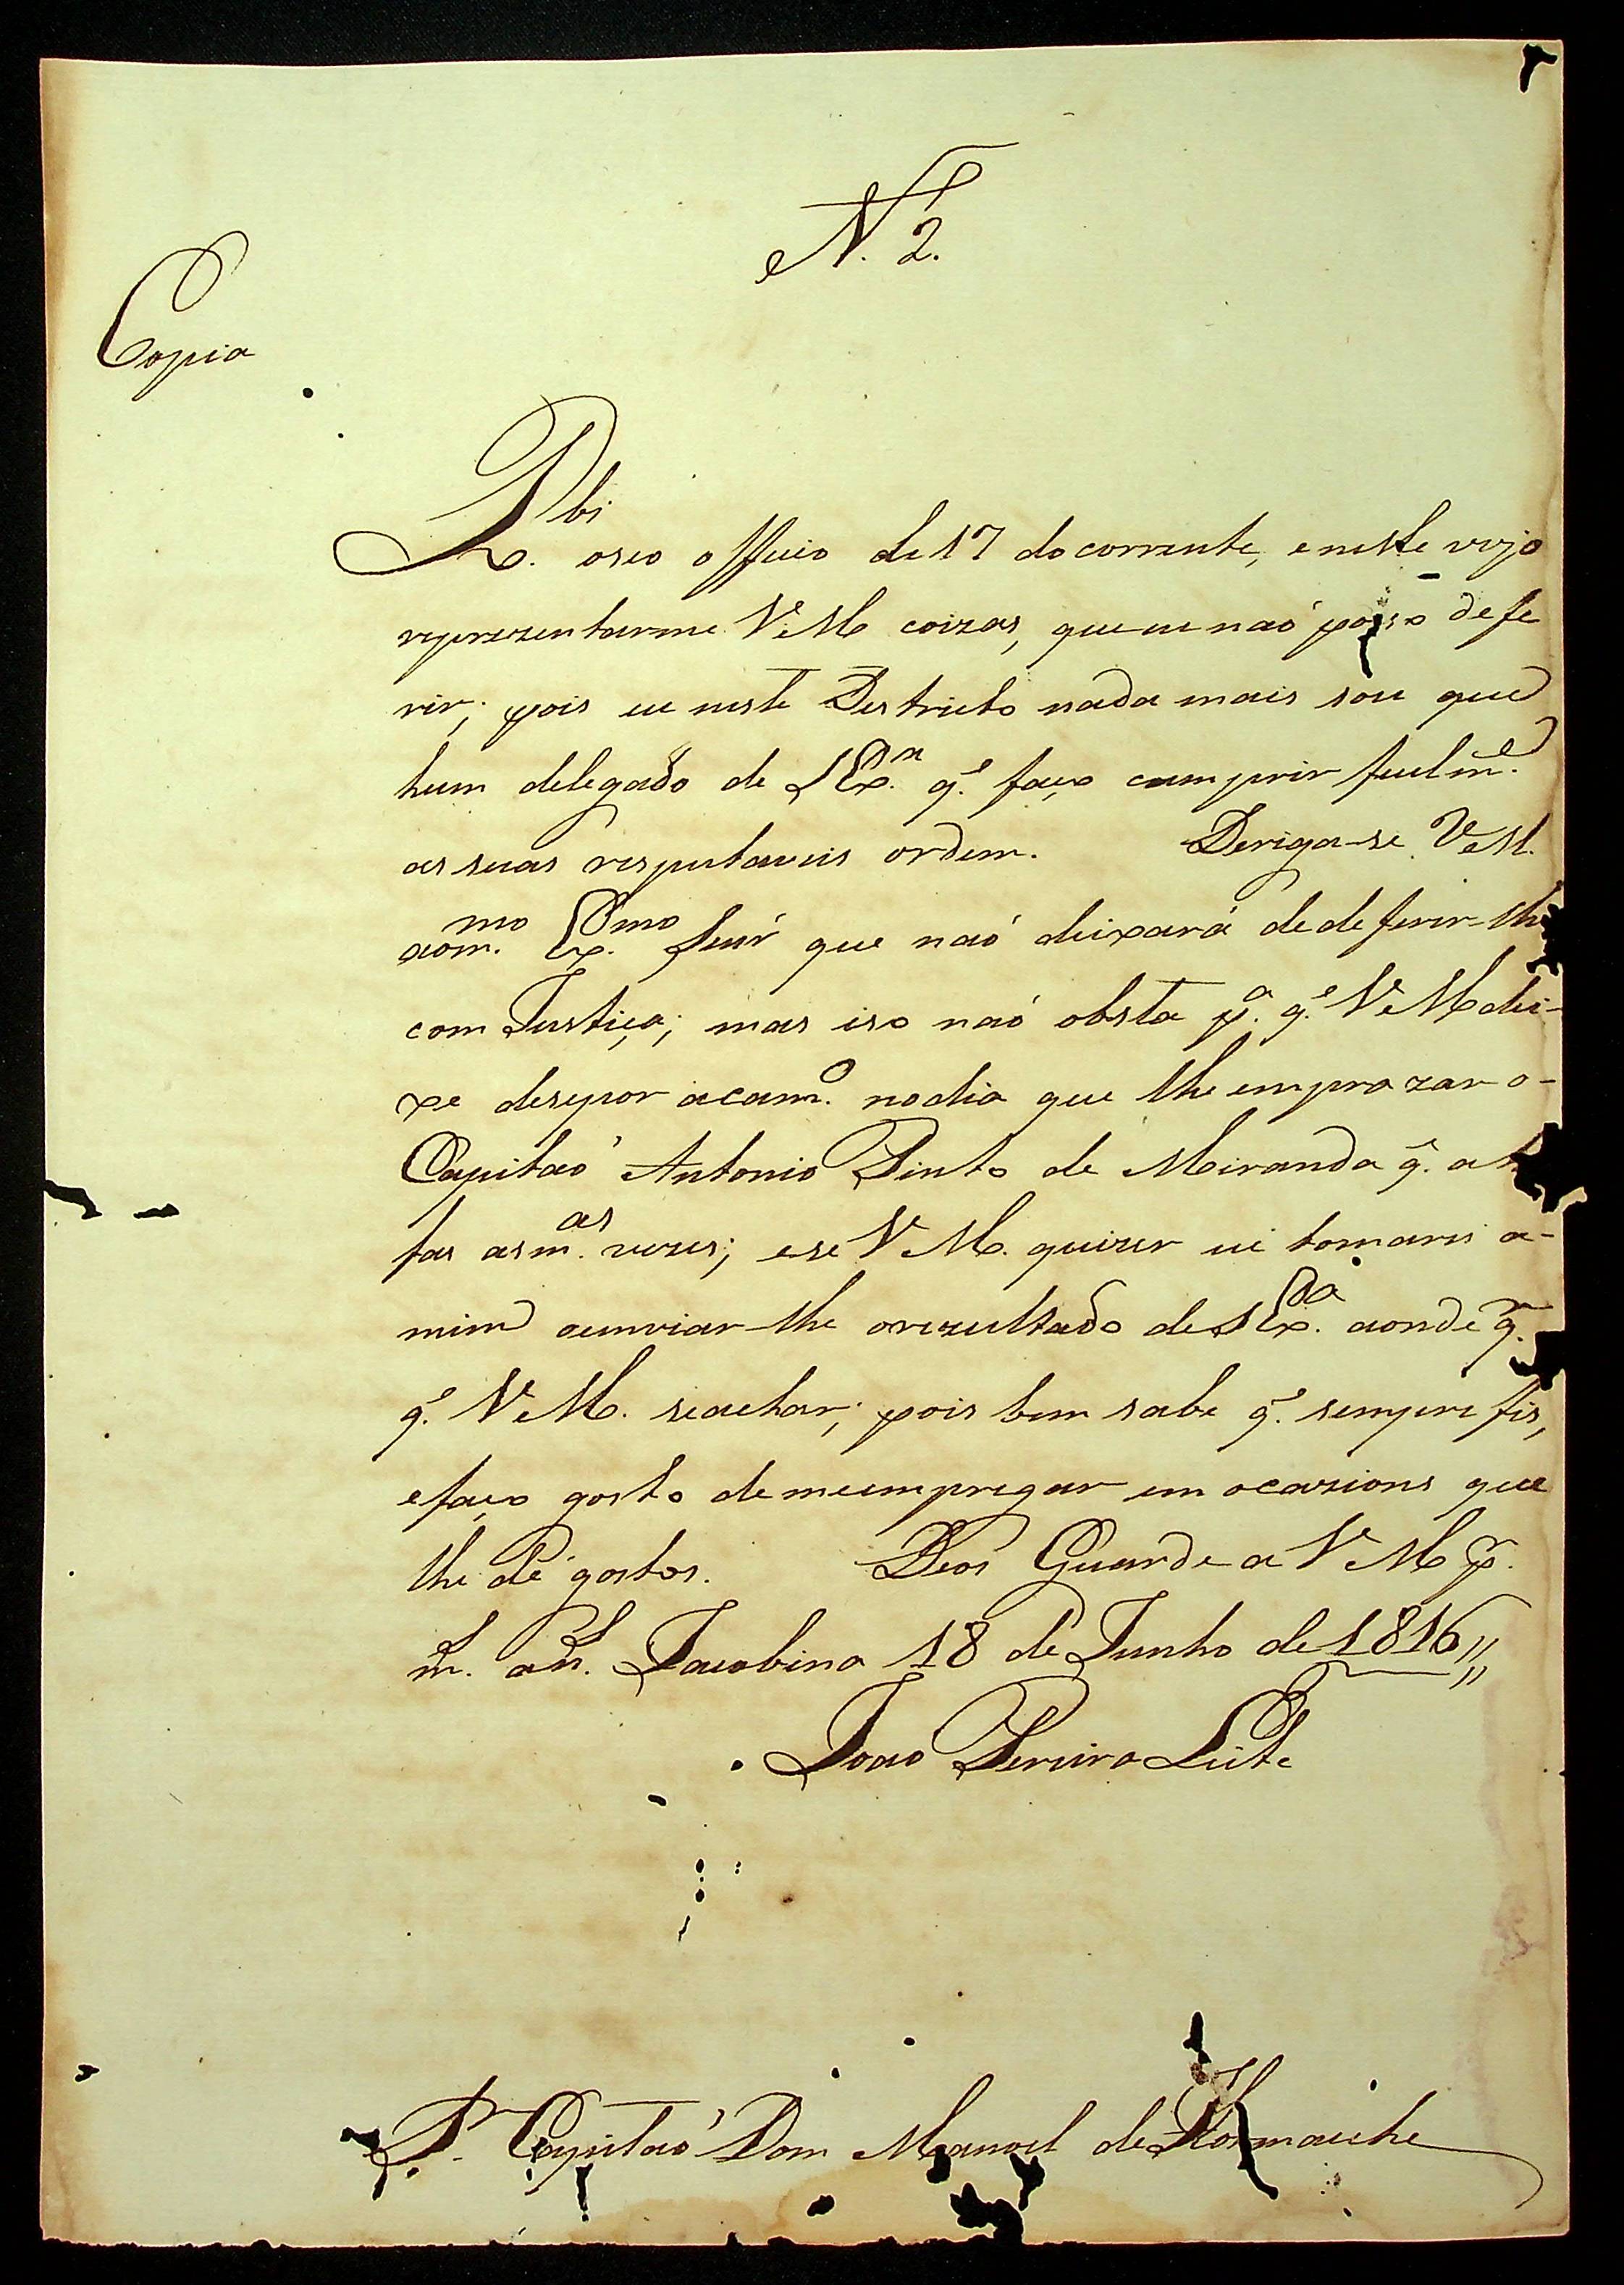 N. 2.
Copia
R.bi oseo officio de 17 do corrente, eneste vejo
reprezentarme VeM coizas, queeu naó posso defe
rir; pois eu neste Destricto nada mais sou que
hum delegado de SEx.a q.e faço cumprir fielm.e
as suas respeitaveis ordem. Deriga-se VeM.
aom.mo Ex.mo Senr que naó deixará dedeferir-lhe
com Justiça; mas iso naó obsta p.a q.e VeM dei-
xe desepor acam.o nodia que lhe emprazar o-
Capitaó Antonio Pinto de Miranda q.e
fas asm.as vezes; ese VeM. quizer eu tomarei a-
mim aenviar-lhe orezultado deSEx.a aonde q.r
q.e VeM. seachar; pois bem sabe q.e sempre fis,
efaço gosto demeempregar em ocazions que
lhe dé gostos. Deos Guarde a VeM p.r
m.s an.s Jacobina 18 de Junho de 1816//
Joao Pereira Leite
S.r Capitaó Dom Manoel de